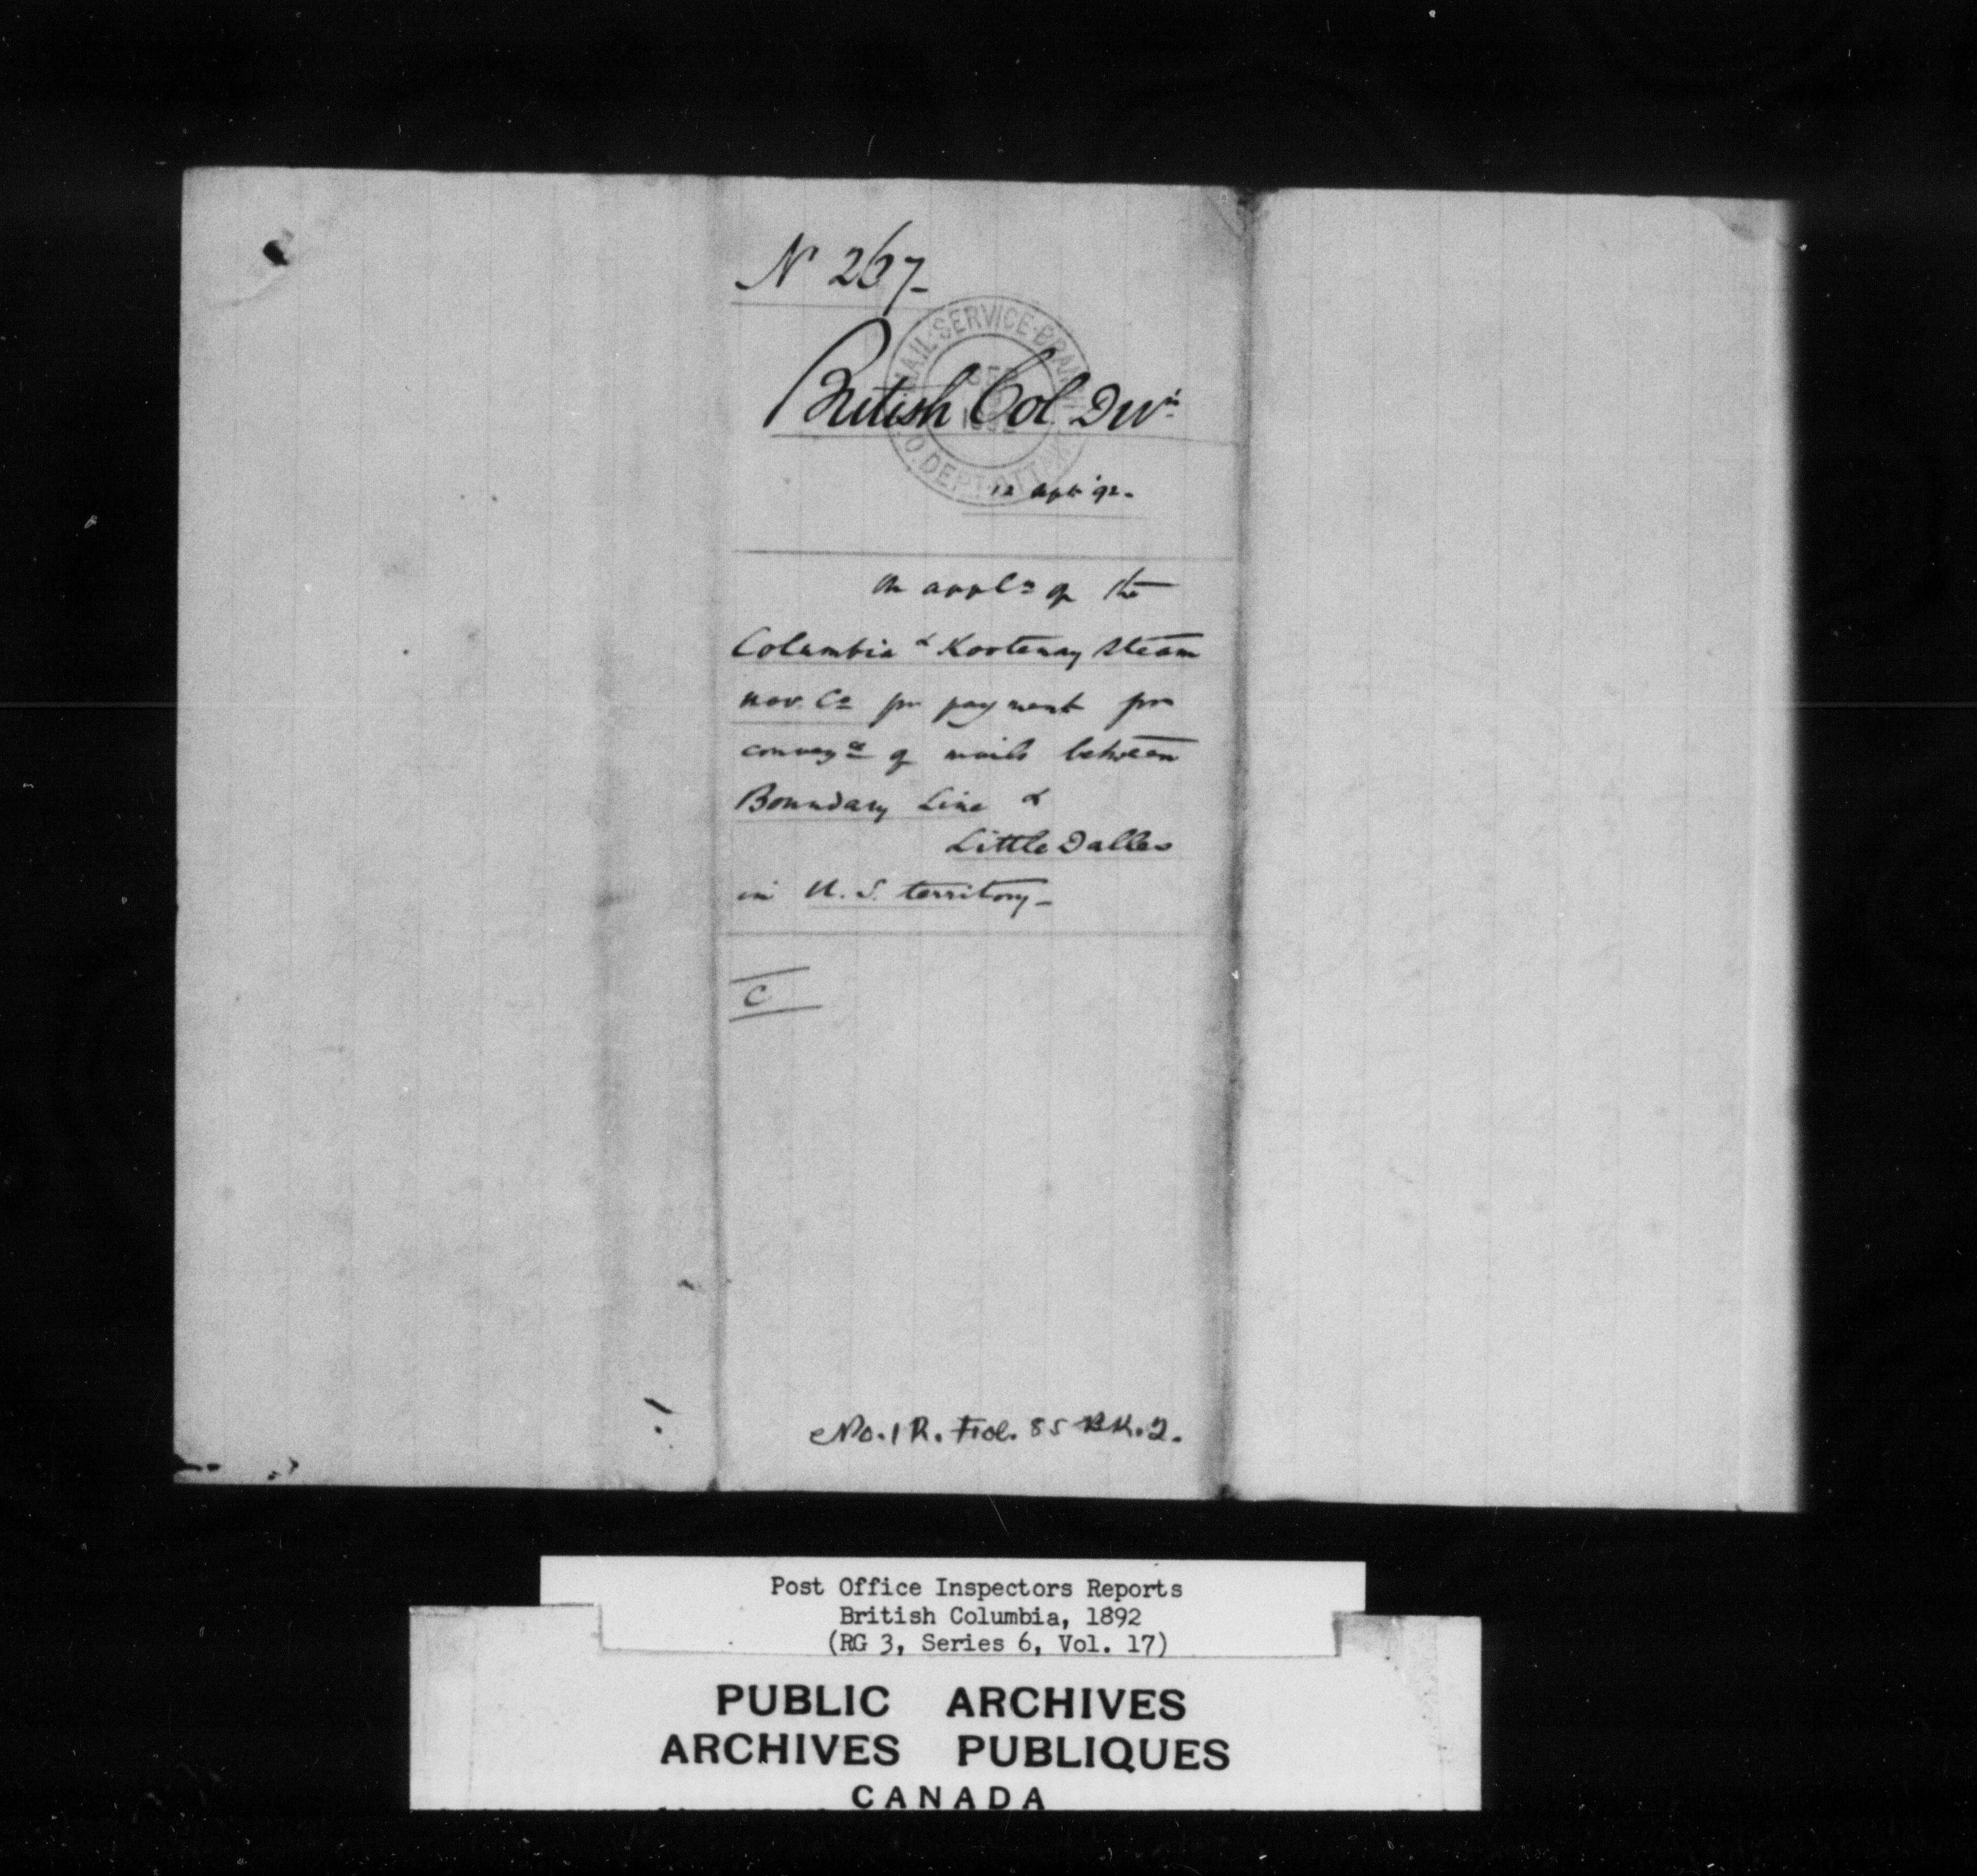 N 267
British Col Divn
MAIL·SERVICE·BRANCH
P.O. DEPT. OTTAWA
SEP
1892
12 apl '92.
on appln of the
Columbia & Kootenay Steam
nav. Co for payment for
conveyce of mails between
Boundary Line &
Little Dalles
in U.S. territory_
C
No. 1 R. Fol. 85 BK. 2.
Post Office Inspectors Reports
British Columbia, 1892
(RG 3, Series 6, Vol. 17)
PUBLIC ARCHIVES
ARCHIVES PUBLIQUES
CANADA